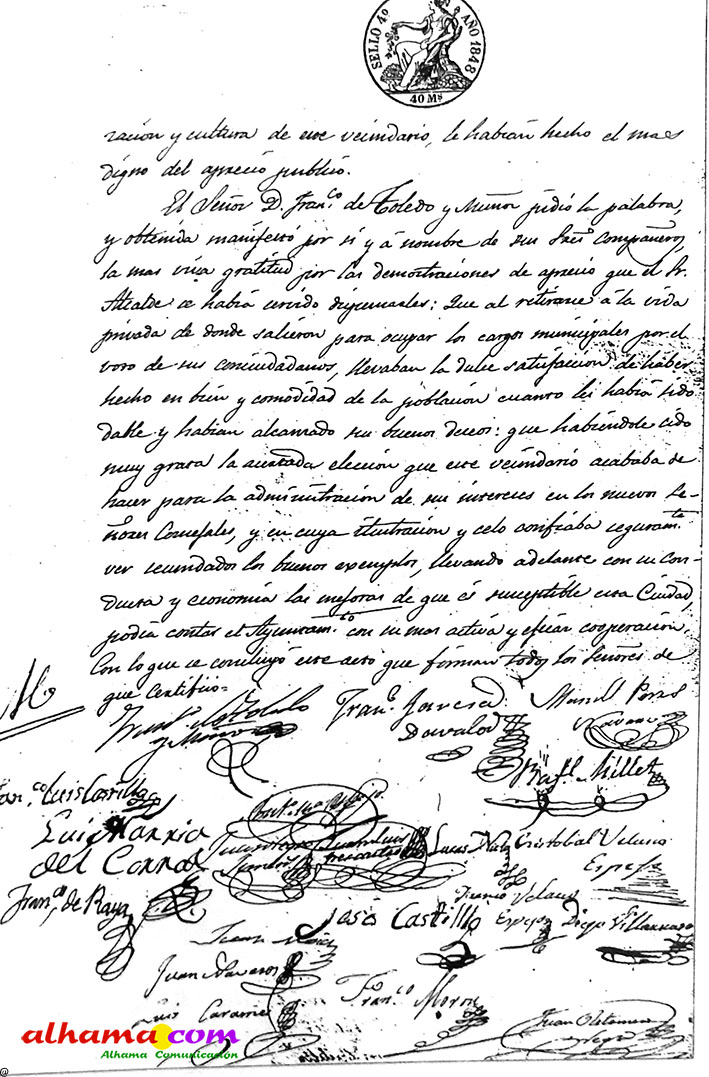 SELLO 4º AÑO 1848
40 Ms
ración y cultura de este vecindario, le habían hecho el mas
digno del aprecio publico.
El Señor D. Franco de Toledo y Muñoz pidió la palabra,
y obtenida manifestó por sí y á nombre de sus Sres compañeros,
la mas viva gratitud por las demostraciones de aprecio que el Sr.
Alcalde se había servido dispensarles: Que al retirarse á la vida
privada de donde salieron para ocupar los cargos municipales por el
voto de sus conciudadanos, llevaban la dulce satisfacción de haber
hecho en bien y comodidad de la población cuanto les había sido
dable y habian alcanzado sus buenos deseos: que habiéndole sido
muy grata la acertada elección que este vecindario acababa de
hacer para la administración de sus intereses en los nuevos Se-
ñores Concejales, y en cuya ilustración y celo confiaba seguramte
ver secundados los buenos exemplos, llevando adelante con su con-
ducta y economía las mejoras de que és suceptible esta Ciudad,
podía contar el Ayuntamto con su mas activa y eficaz cooperación.
Con lo que se concluyó este acto que firman todos los Señores de
que Certifico=
Franco de Toledo
y Muñoz
Franco
Davalos
Manuel
Navarro
Rafl Millet
Franco Luis Castillo
Luis Maria
del Corral
Juan Luis
Lucas Ruiz
Cristobal Velasco
Espejo
Franco de Raya
José Castillo
Velasco
Espejo
Diego Villarraso
Juan Naveros
Luis
Franco Moron
Juan
Negro
alhama.com
Alhama Comunicación
@